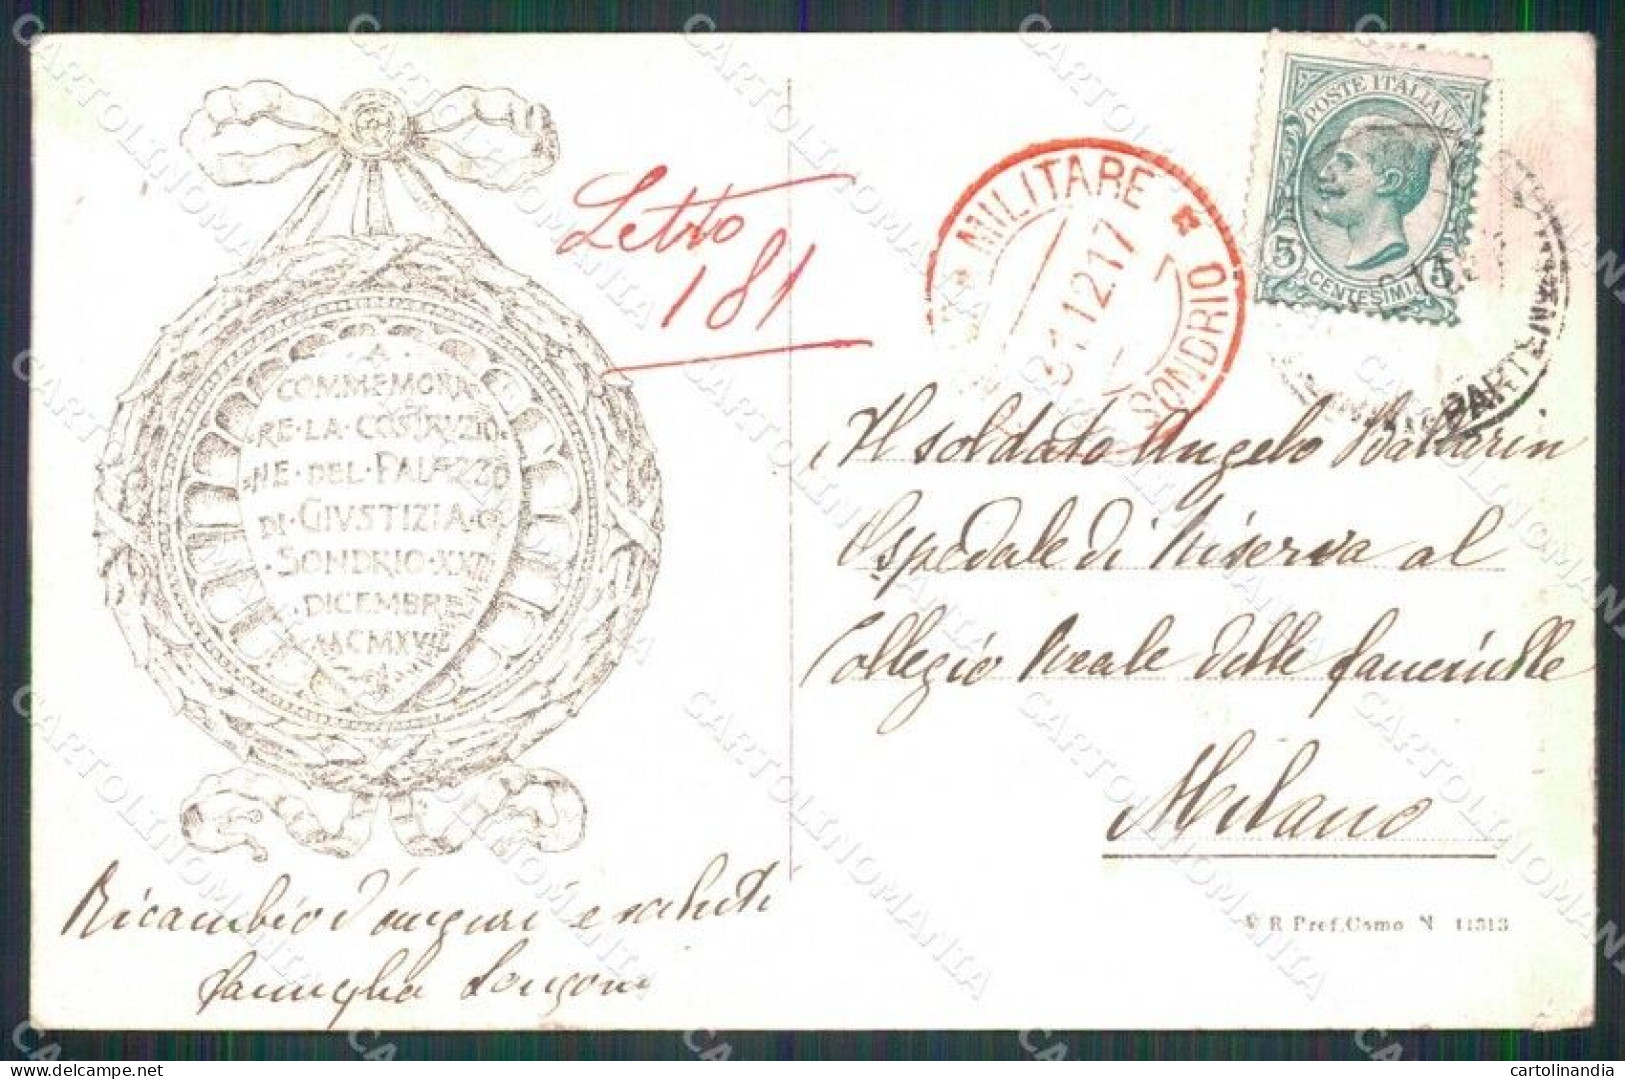 A
COMMEMORA
RE·LA·COSTRVZIO
NE·DEL·PALAZZO
DI·GIVSTIZIA·
SONDRIO·XXIII
·DICEMBRE
MCMXVII
Ricambio d'auguri e saluti
famiglia
Letto
181
MILITARE
SONDRIO
31.12.17
POSTE ITALIANE
5 CENTESIMI 5
PARTENZA
Il soldato Angelo Ballarin
Ospedale di Riserva al
Collegio Reale delle fanciulle
Milano
V R Pref. Como N 11313
CARTOLINOMANIA
cartolinandia